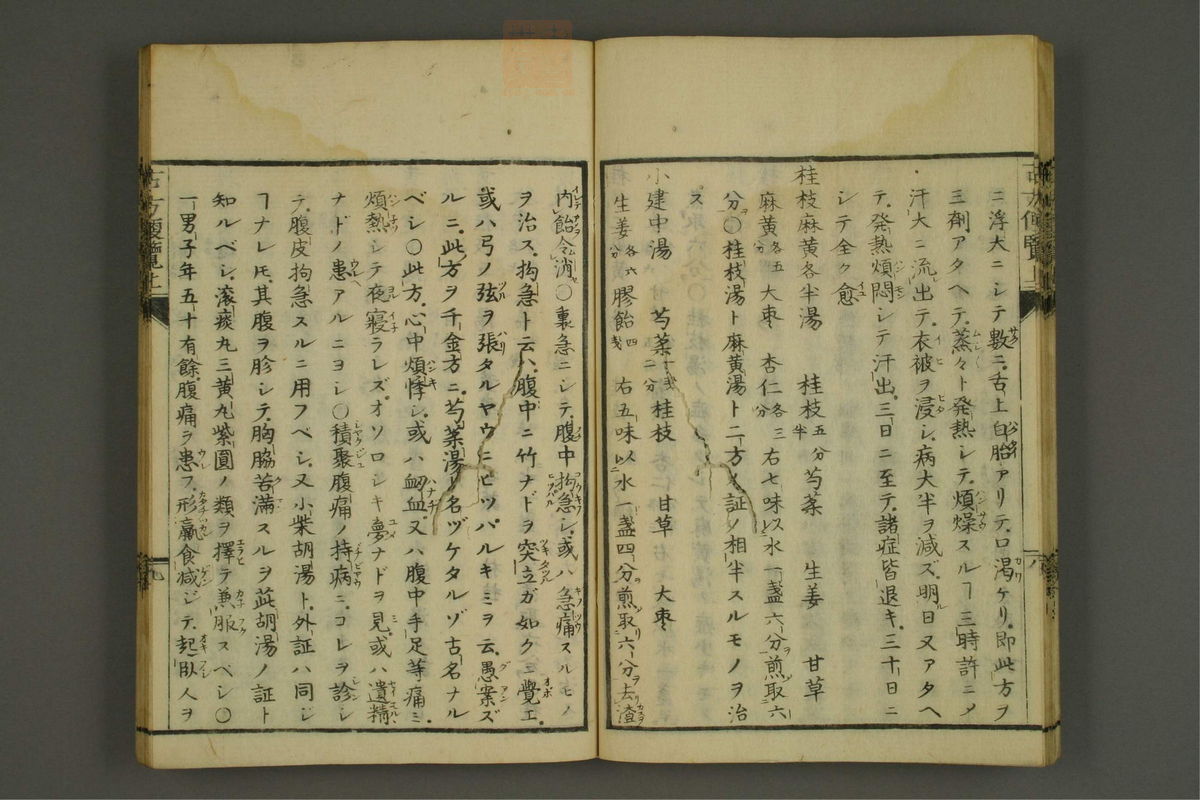 ニ浮大ニシテ數ニ舌上白胎アリテ口渇ケリ即此方ヲ
三劑アタヘテ蒸々ト発熱シテ煩燥スルヿ三時許ニメ
汗大ニ流出テ衣被ヲ浸シ病大半ヲ減ズ明日又アタヘ
テ発熱煩悶シテ汗出三日ニ至テ諸症皆退キ三十日ニ
シテ全ク愈
桂枝麻黄各半湯 桂枝五分半 芍薬 生姜 甘草
麻黄各五分 大棗 杏仁各三分 右七味以水一盞六分煎取六
分○桂枝湯ト麻黄湯ト二方ノ証ノ相半スルモノヲ治
ス
小建中湯 芍薬 桂枝 甘草 大棗
生姜各六分 膠飴四戔 右五味以水一盞四分煎取六分去渣
内飴令消○裏急ニシテ腹中拘急シ或ハ急痛スルモノ
ヲ治ス拘急ト云ハ腹中ニ竹ナドヲ突立ガ如クニ覺エ
或ハ弓ノ弦ヲ張タルヤウニヒツパルキミヲ云愚案ズ
ルニ此方ヲ千金方ニ芍薬湯ト名ヅケタルゾ古名ナル
ベシ○此方心中煩悸シ或ハ衄血又ハ腹中手足等痛ミ
煩熱シテ夜寝ラレズオソロシキ夢ナドヲ見或ハ遺精
ナドノ患アルニヨシ○積聚腹痛ノ持病ニコレヲ診シ
テ腹皮拘急スルニ用フベシ又小柴胡湯ト外証ハ同ジ
ヿナレ𪜈其腹ヲ診シテ胸脇苦滿スルヲ茈胡湯ノ証ト
知ルベシ滚痰丸三黄丸紫圓ノ類ヲ擇テ兼服スベシ○
一男子年五十有餘腹痛ヲ患フ形羸食減ジテ起臥人ヲ
古方便覽上
六
古方便覽上
九